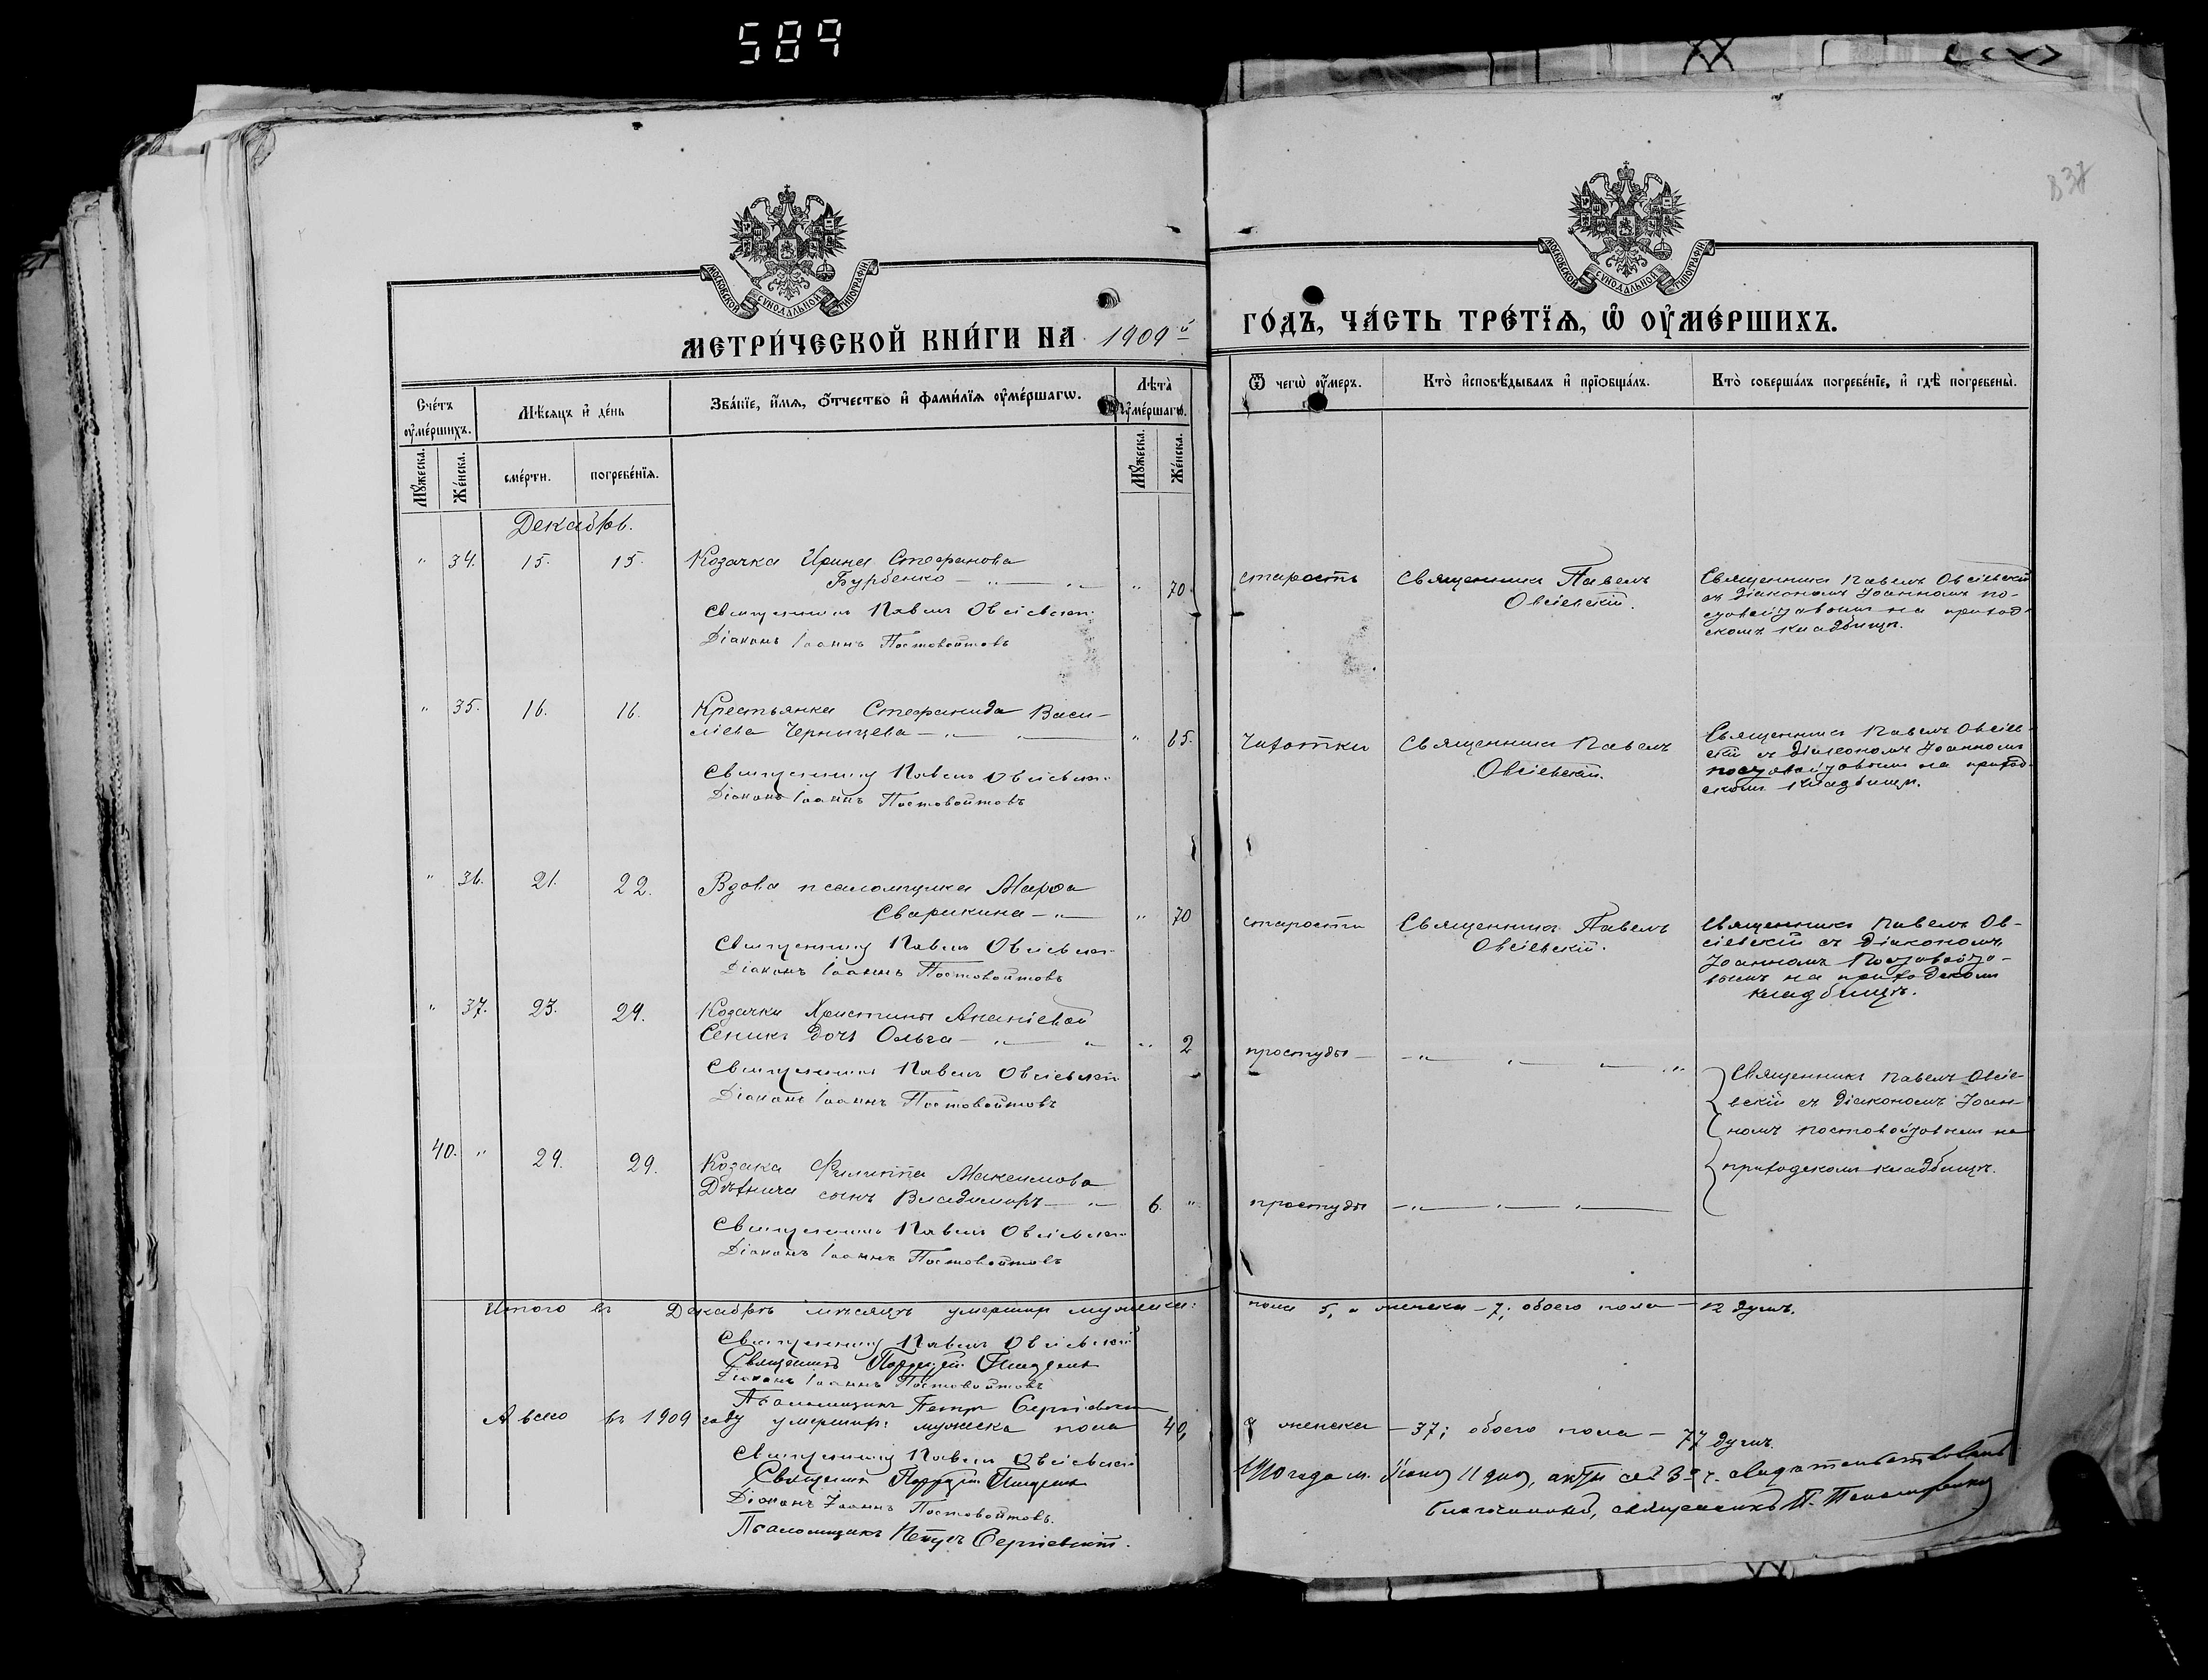 589
837
МОСКОВСКОЙ СѴНОДАЛЬНОЙ ТИПОГРАФІИ
МОСКОВСКОЙ СѴНОДАЛЬНОЙ ТИПОГРАФІИ
МЕТРИ́ЧЕСКОЙ КНИ́ГИ НА 1909 й
ГО́ДЪ, ЧА́СТЬ ТРЕ́ТЇѦ, Ѡ҆ ОУ҆МЕ́РШИХЪ.
Сче́тъ оу҆ме́ршихъ.
Мѣ́сѧцъ и҆ де́нь
Зва́нїе, и҆́мѧ, ѻ҆́тчество и҆ фами́лїѧ оу҆ме́ршагѡ.
Лѣ́та оу҆ме́ршагѡ.
Ѿ чегѡ̀ оу҆́меръ.
Кто̀ и҆сповѣ́дывалъ и҆ прїѻбща́лъ.
Кто̀ соверша́лъ погребе́нїе, и҆ гдѣ̀ погребены̀.
Мꙋ́жеска.
Же́нска.
сме́рти.
погребе́нїѧ.
Мꙋ́жеска.
Же́нска.
Декабрь.
" 34. 15. 15. Козачка Ирина Стефанова
Бурбенко — " — " " 70.
Священникъ Павелъ Овсіевскій
Діаконъ Іоаннъ Постовойтовъ
старость
Священникъ Павелъ
Овсіевскій.
Священникъ Павелъ Овсіевскій
съ діакономъ Іоанномъ По-
стовойтовымъ на приход-
скомъ кладбищѣ.
" 35. 16. 16. Крестьянка Стефанида Васи-
ліева Чернышева — " — " 65.
Священникъ Павелъ Овсіевскій
Діаконъ Іоаннъ Постовойтовъ
Чахотки
Священникъ Павелъ
Овсіевскій.
Священникъ Павелъ Овсіев-
скій съ діакономъ Іоанномъ
Постовойтовымъ на приход-
скомъ кладбищѣ.
" 36. 21. 22. Вдова псаломщика Марѳа
Сварикина — " — " 70
Священникъ Павелъ Овсіевскій
Діаконъ Іоаннъ Постовойтовъ
старости
Священникъ Павелъ
Овсіевскій.
Священникъ Павелъ Ов-
сіевскій съ діакономъ
Іоанномъ Постовойто-
вымъ на приходскомъ
кладбищѣ.
" 37. 23. 29. Козачки Христины Ананіевой
Сеникъ дочь Ольга — " — " " 2
Священникъ Павелъ Овсіевскій
Діаконъ Іоаннъ Постовойтовъ
простуды — " — " — "
Священникъ Павелъ Овсіе-
вскій съ діакономъ Іоан-
номъ Постовойтовымъ на
приходскомъ кладбищѣ.
40. " 29. 29. Козака Филиппа Максимова
сынъ Владимиръ — " 6. "
Священникъ Павелъ Овсіевскій
Діаконъ Іоаннъ Постовойтовъ
простуды — " — " — " —
Итого въ Декабрѣ мѣсяцѣ умерших мужеска:
пола 5, и женска — 7; обоего пола — 12 душъ.
Священникъ Павелъ Овсіевскій
Священникъ
Діаконъ Іоаннъ Постовойтовъ
Псаломщикъ Петръ Сергіевскій
А всего въ 1909 году умерших: мужеска пола 40,
и женска — 37; обоего пола — 77 душъ.
Священникъ Павелъ Овсіевскій
Священникъ
Діаконъ Іоаннъ Постовойтовъ.
Псаломщикъ Петръ Сергіевскій.
1910 года м. 11 дня, акты сей 3й ч. свидѣтельствовалъ
благочинный, священникъ П.